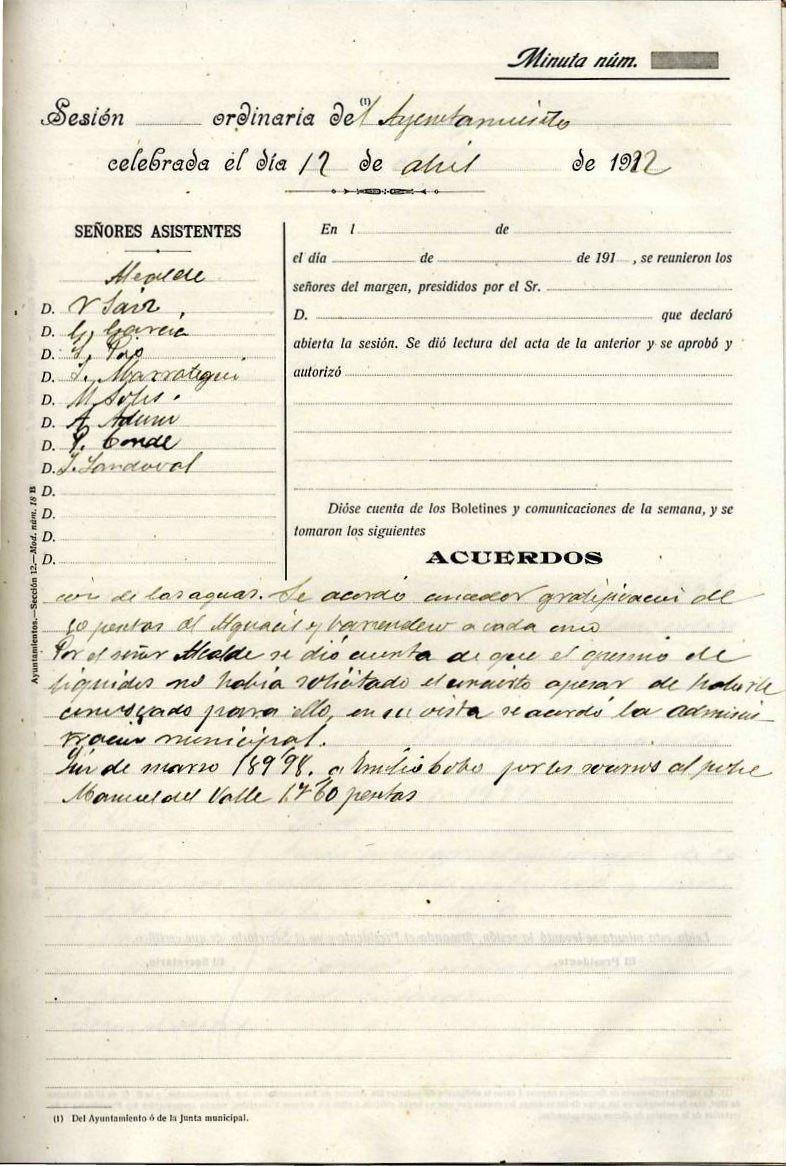 Minuta núm.
Sesión ordinaria del (1) Ayuntamiento
celebrada el día 12 de abril de 1922
SEÑORES ASISTENTES
Alcalde
D. V Saiz
D. G. García
D. S. Pao
D. S. Marrategui
D. M Solis
D. A. Aduna
D. P. Conde
D. J. Sandoval
D.
D.
D.
D.
En l de
el día de de 191 , se reunieron los
señores del margen, presididos por el Sr.
D. que declaró
abierta la sesión. Se dió lectura del acta de la anterior y se aprobó y
autorizó
Dióse cuenta de los Boletines y comunicaciones de la semana, y se
tomaron los siguientes
ACUERDOS
ción de las aguas. Se acordó conceder gratificación de
50 pesetas al Alguacil y barrendero a cada uno
Por el señor Alcalde se dió cuenta de que el gremio de
líquidos no había solicitado el concierto apesar de haberle
convocado para ello, en su vista se acordó la adminis-
tración municipal.
Luz de marzo 189'98. a Emilio Cobo por los socorros al pobre
Manuel del Valle 17'60 pesetas
Ayuntamientos.—Sección 12.—Mod. núm. 18 B
(1) Del Ayuntamiento ó de la Junta municipal.